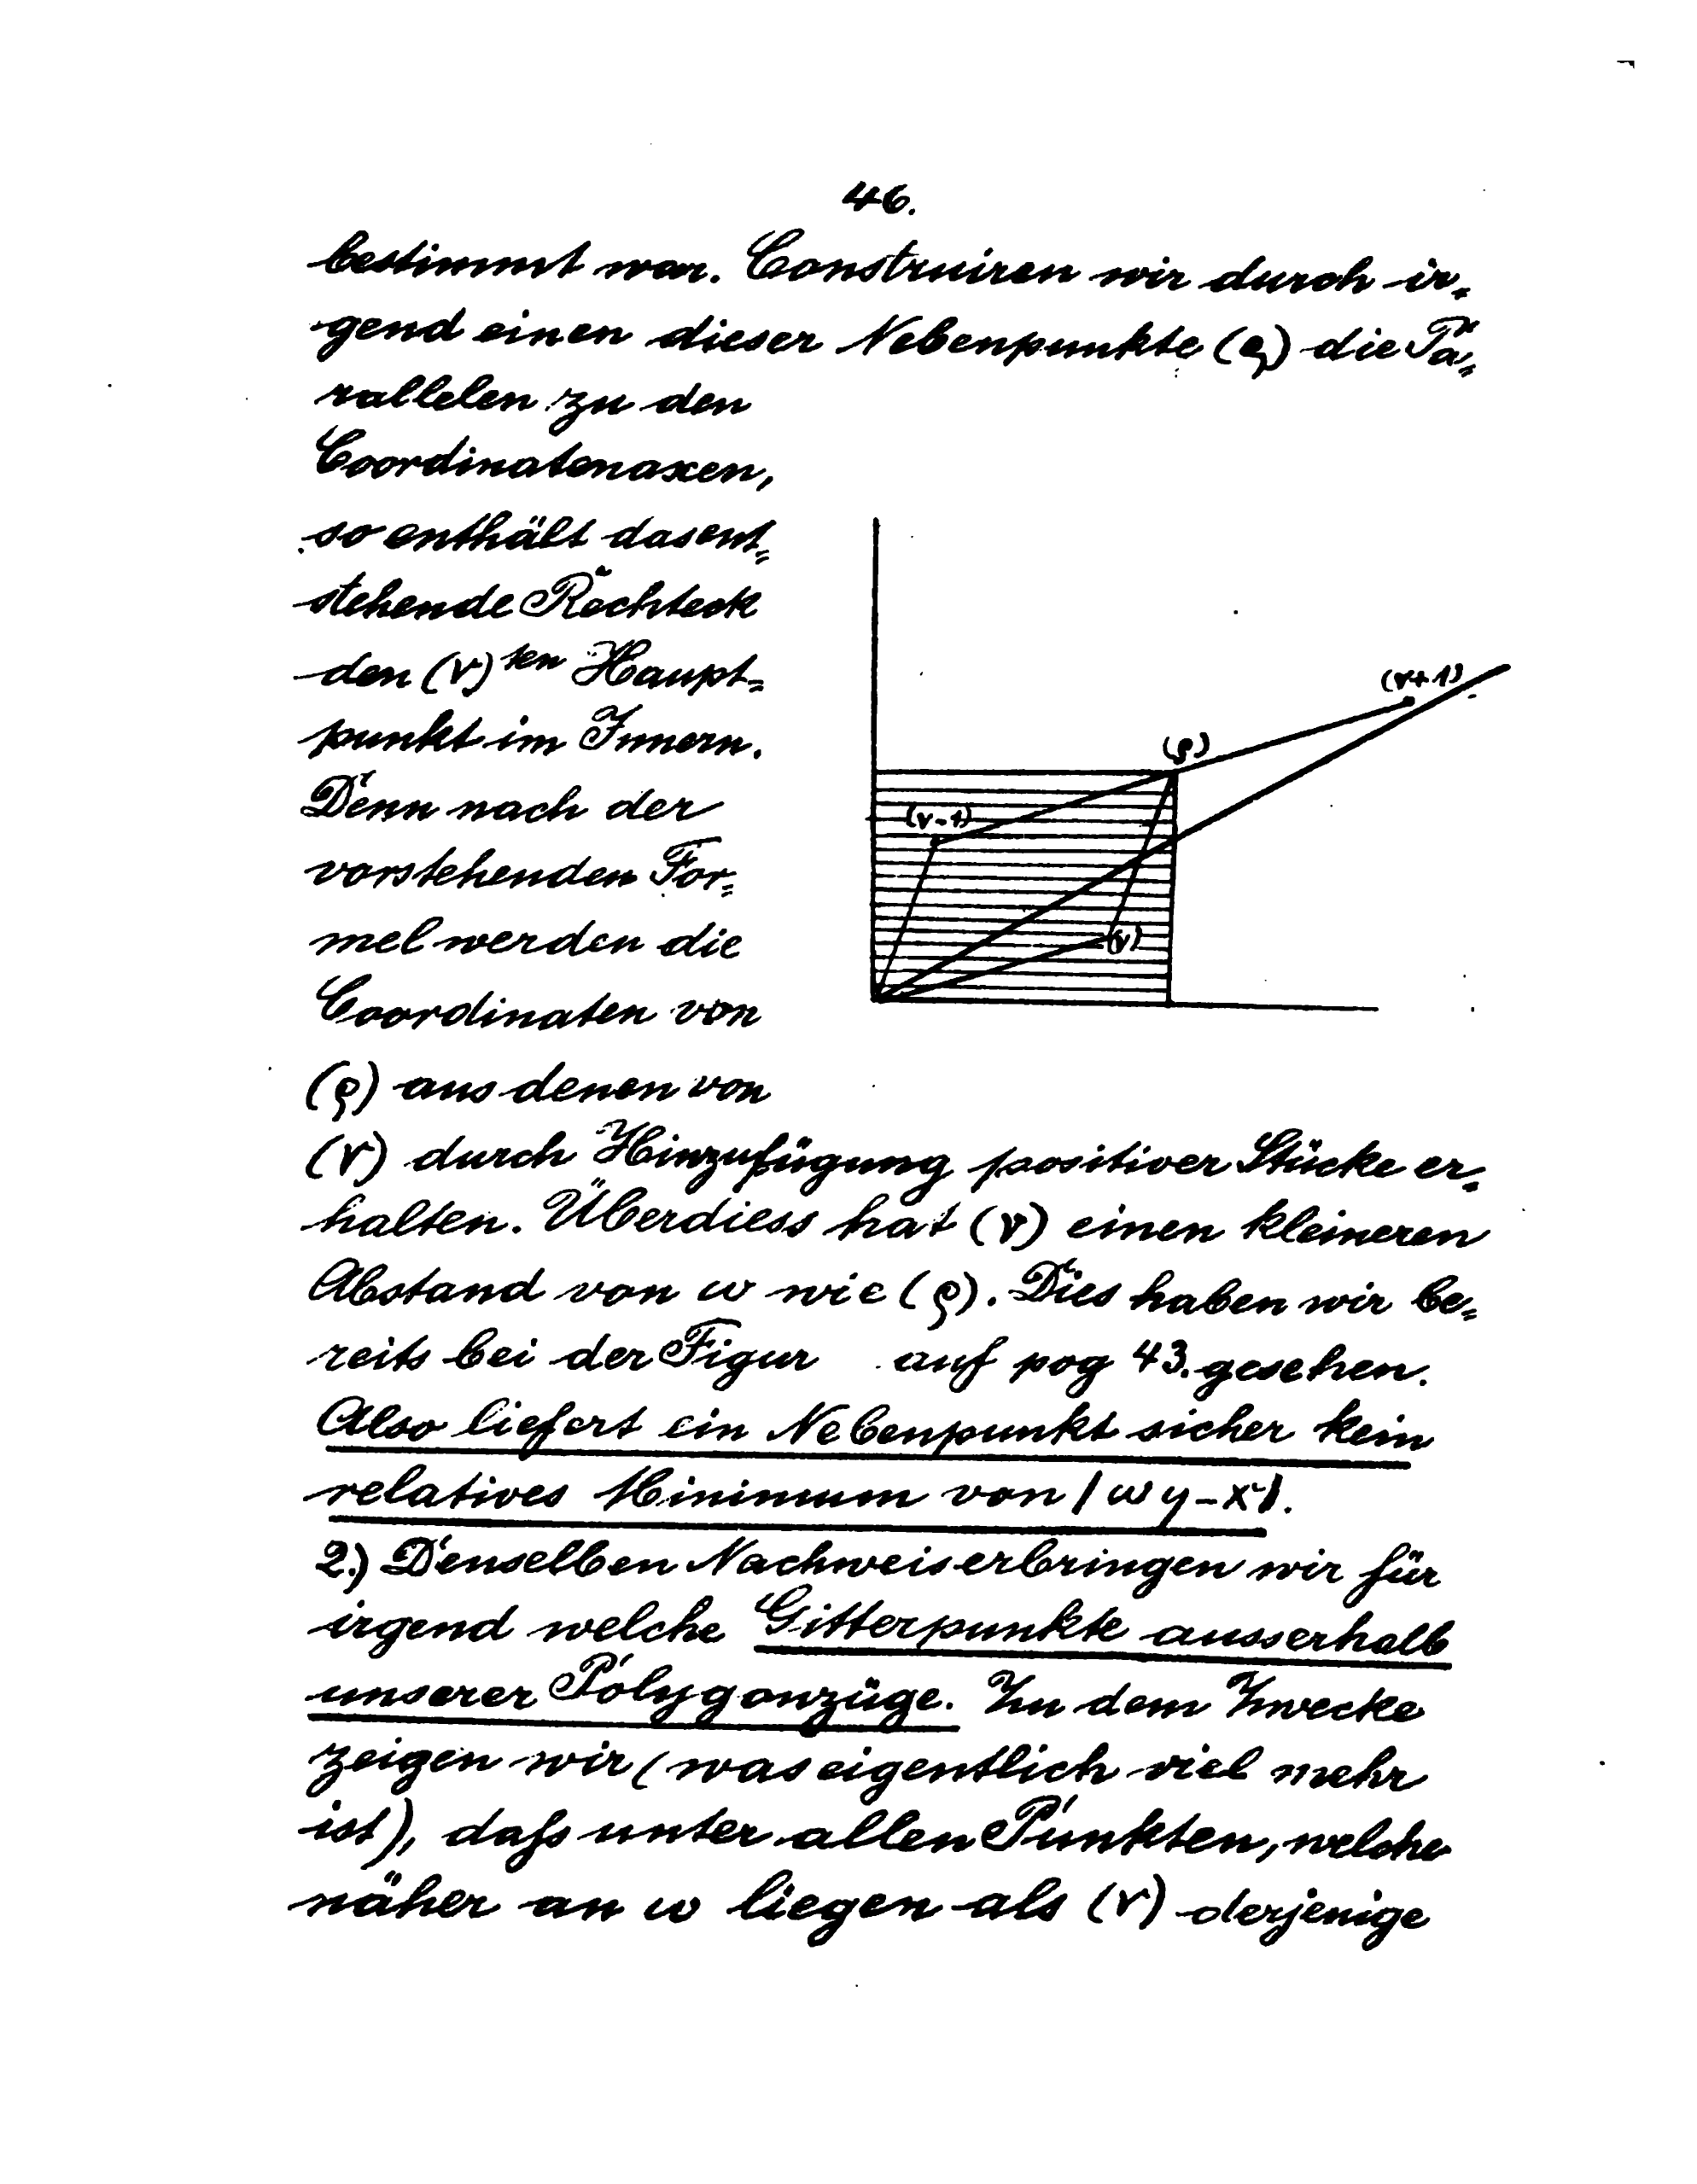 46.
bestimmt war. Construiren wir durch ir=
gend einen dieser Nebenpunkte (ϱ) die Pa=
rallelen zu den
Coordinatenaxen,
so enthält das ent=
stehende Rechteck
den (ν)ten Haupt=
punkt im Innern.
Denn nach der
vorstehenden For=
mel werden die
Coordinaten von
(ϱ) aus denen von
(ν+1)
(ϱ)
(ν-1)
(ν)
(ν) durch Hinzufügung positiver Stücke er=
halten. Überdiess hat (ν) einen kleineren
Abstand von ω wie (ϱ). Dies haben wir be=
reits bei der Figur auf pag 43. gesehen.
Also liefert ein Nebenpunkt sicher kein
relatives Minimum von |ωy-x|.
2.) Denselben Nachweis erbringen wir für
irgend welche Gitterpunkte ausserhalb
unserer Polygonzüge. Zu dem Zwecke
zeigen wir (was eigentlich viel mehr
ist), daſs unter allen Punkten, welche
näher an ω liegen als (ν) derjenige